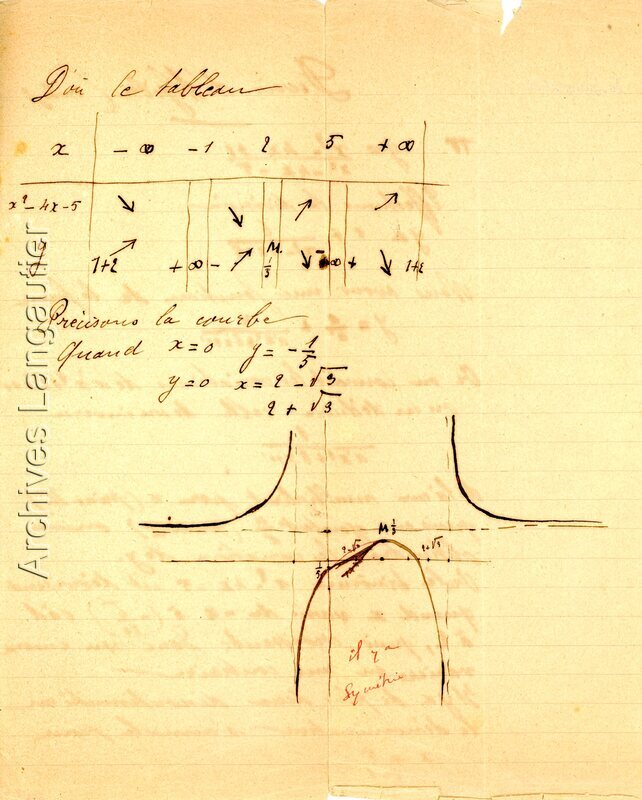 D'où le tableau
x -∞ -1 2 5 +∞
x²-4x-5 ↘ ↘ ↗ ↗
y 1+ε ↗ +∞ - ↗ M. 1/3 ↘ -∞ + ↘ 1+ε
Précisons la courbe
Quand x=0 y=-1/5
y=0 x=2-√3
2+√3
M 1/3
2-√3 2+√3
1/5
il y a
Symétrie
Archives Langautier